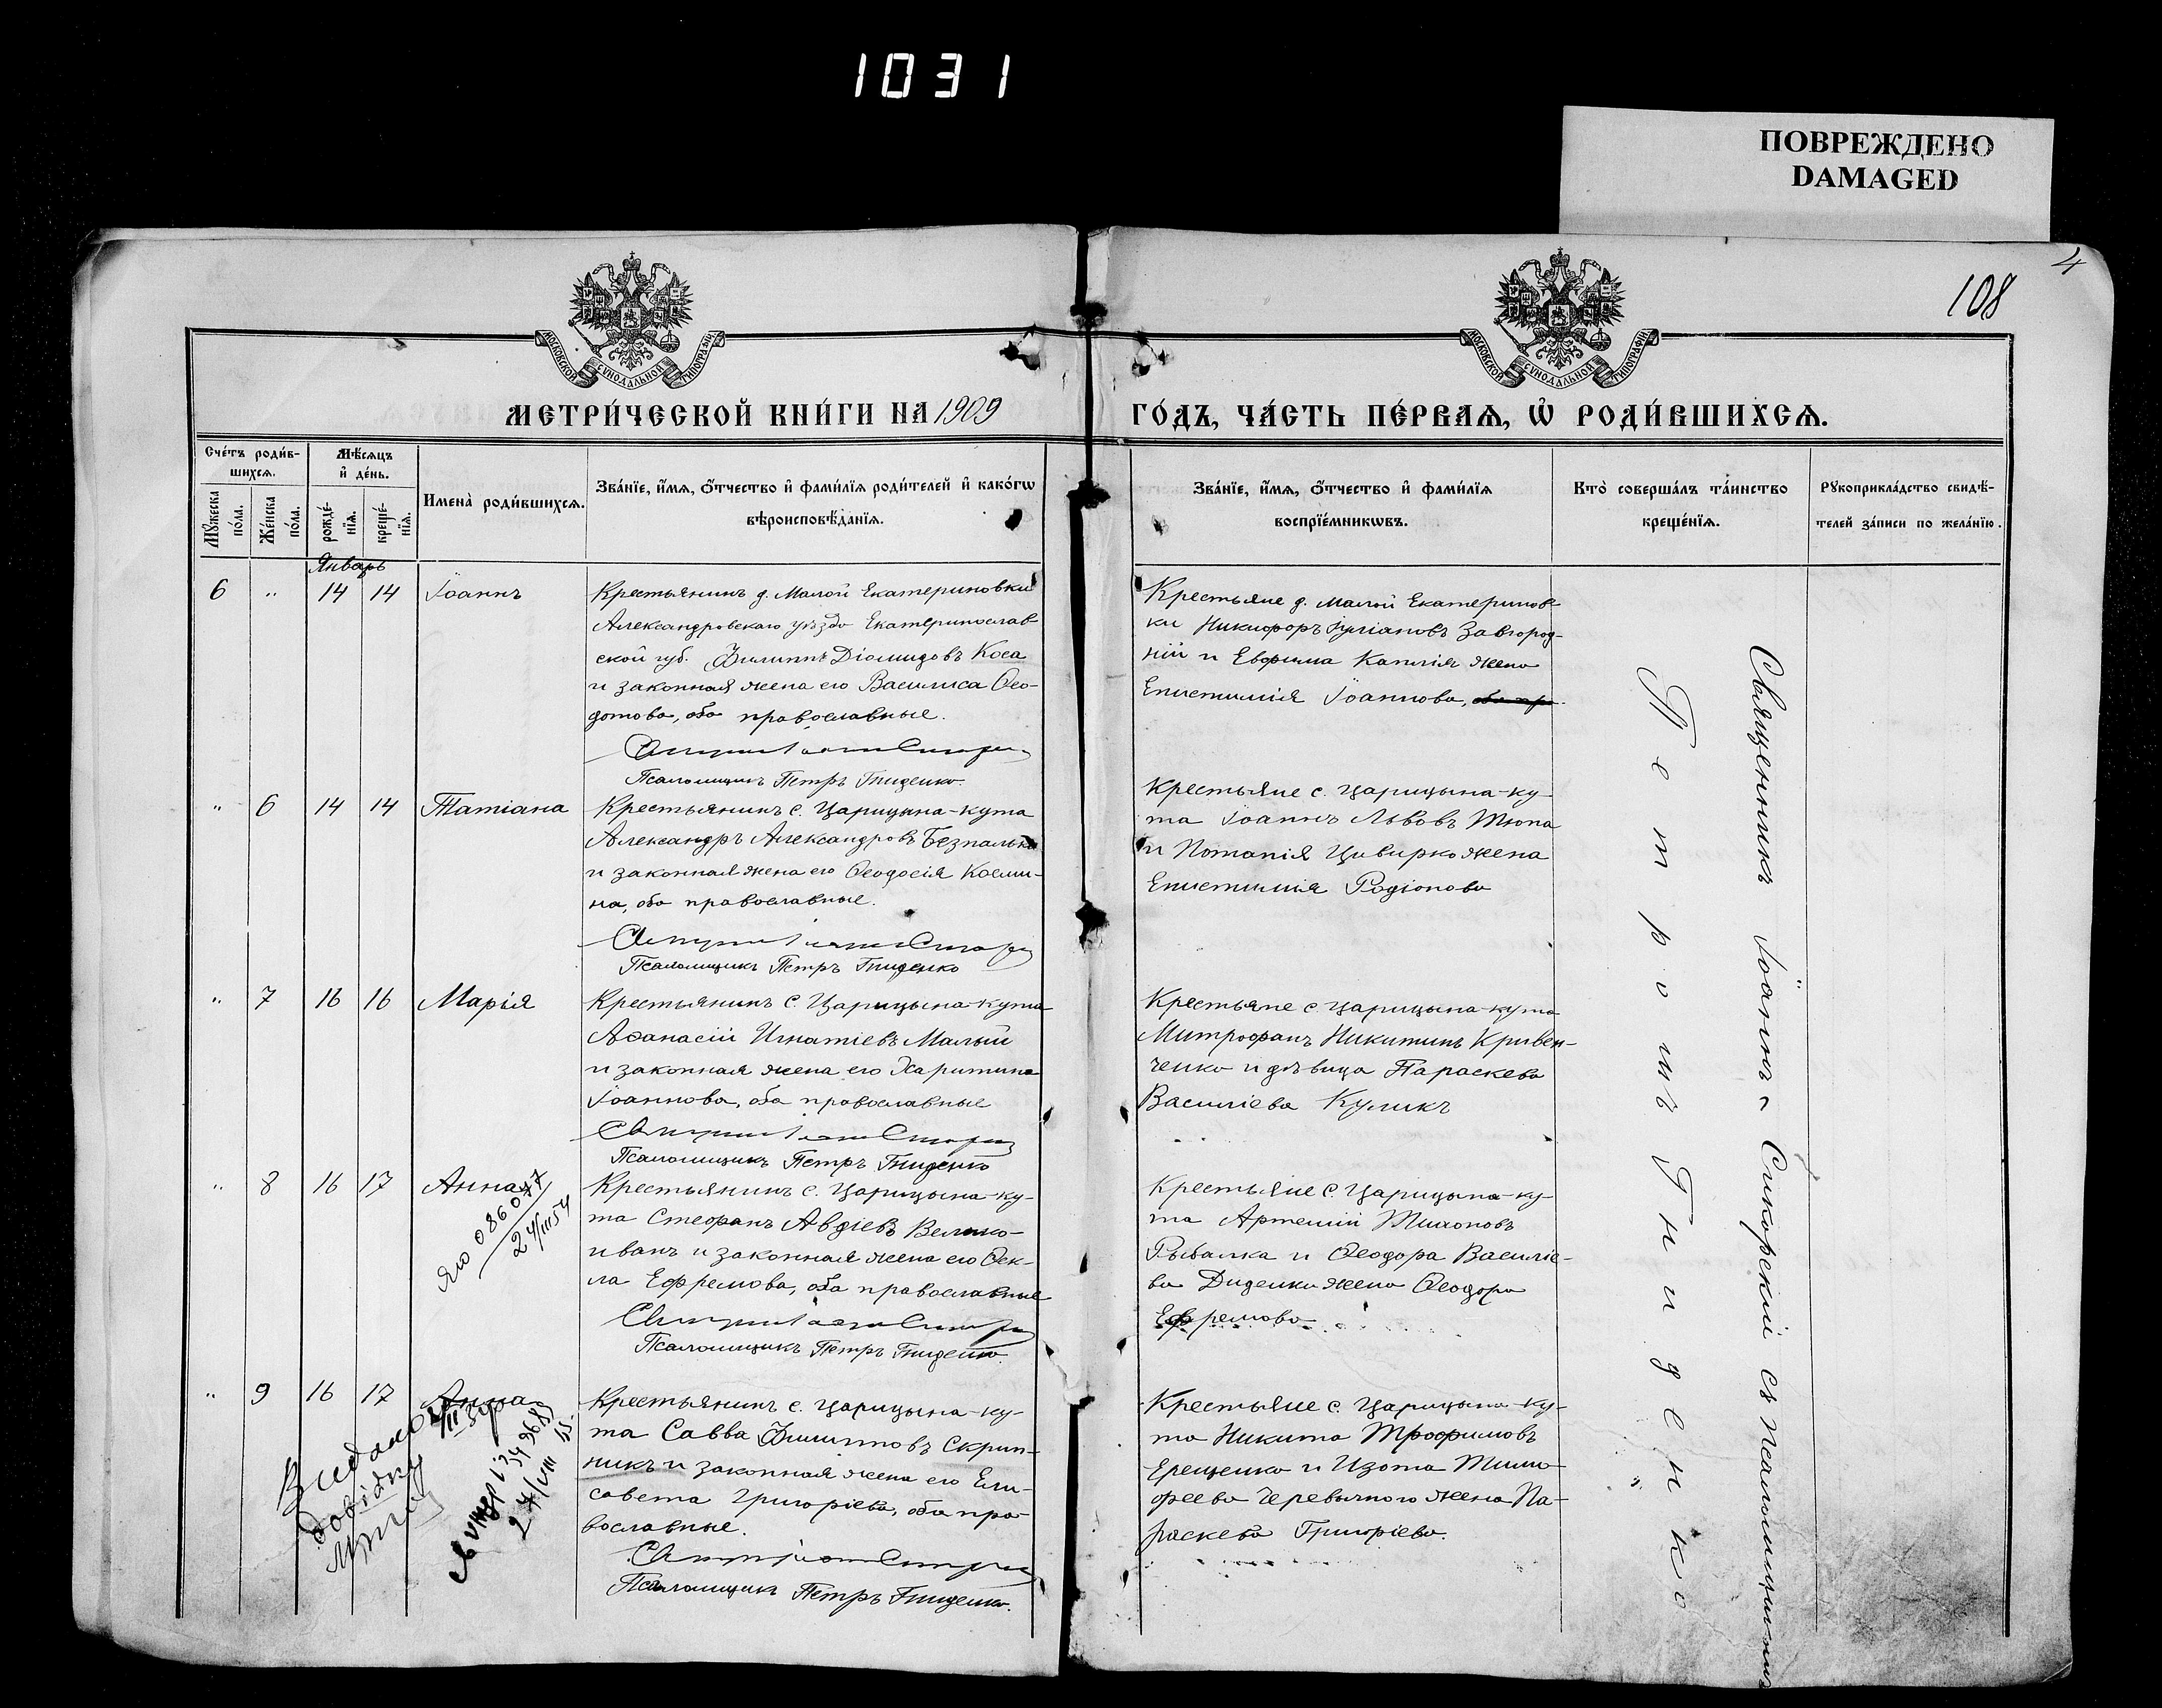 1031
ПОВРЕЖДЕНО
DAMAGED
4
108
МОСКОВСКОЙ СѴНОДАЛЬНОЙ ТИПОГРАФІИ
МОСКОВСКОЙ СѴНОДАЛЬНОЙ ТИПОГРАФІИ
МЕТРИ́ЧЕСКОЙ КНИ́ГИ НА 1909
ГО́ДЪ, ЧА́СТЬ ПЕ́РВАѦ, Ѡ҆ РОДИ́ВШИХСѦ.
Сче́тъ роди́в-
шихсѧ.
Мꙋжеска по́ла.
Же́нска по́ла.
Мѣ́сѧцъ
и҆ де́нь.
рожде́-
нїѧ.
креще́-
нїѧ.
Имена̀ роди́вшихсѧ.
Зва́нїе, и҆́мѧ, ѻ҆́тчество и҆ фами́лїѧ роди́телей и҆ како́гѡ
вѣроисповѣ́данїѧ.
Зва́нїе, и҆́мѧ, ѻ҆́тчество и҆ фами́лїѧ
воспрїе́мникѡвъ.
Кто̀ соверша́лъ та́инство
креще́нїѧ.
Рꙋкоприкла́дство свидѣ́-
телей за́писи по жела́нїю.
Январь
6 " 14 14 Іоаннъ
Крестьянинъ д. Малой Екатериновки
Александровскаго уѣзда Екатеринослав
ской губ. Филиппъ Діомидовъ Коса
и законная жена его Василиса Ѳео-
дотова, оба православные.
Псаломщикъ Петръ Гниденко.
Крестьяне д. Малой Екатеринов-
ки Никифоръ Іуліановъ Завгород-
ній и Евфима Каплія жена
Епистимія Іоаннова,
" 6 14 14 Татіана
Крестьянинъ с. Царицына-кута
Александръ Александровъ Безпалько
и законная жена его Ѳеодосія Косми-
на, оба православные.
Псаломщикъ Петръ Гниденко
Крестьяне с. Царицына-ку-
та Іоаннъ Львовъ Тюпа
и Потапія Цивирко жена
Епистимія Родіонова
" 7 16 16 Марія
Крестьянинъ с. Царицына-кута
Аѳанасій Игнатіевъ Малый
и законная жена его Харитина
Іоаннова, оба православные
Псаломщикъ Петръ Гниденко
Крестьяне с. Царицына-кута
Митрофанъ Никитинъ Кривен-
ченко и дѣвица Параскева
Василіева Куликъ
" 8 16 17 Анна
Крестьянинъ с. Царицына-ку-
та Стефанъ Авдіевъ Велико-
иванъ и законная жена его Ѳек-
ла Ефремова, оба православные
Псаломщикъ Петръ Гниденко.
Крестьяне с. Царицына-ку-
та Артемій Тихоновъ
Рыбалка и Ѳеодора Василіе-
ва Диденка жена Ѳеодора
Ефремова
" 9 16 17 Анна
Крестьянинъ с. Царицына-ку-
та Савва Филипповъ Скрип-
никъ и законная жена его Ели-
савета Григоріева, оба пра-
вославные.
Псаломщикъ Петръ Гниденко.
Крестьяне с. Царицына-ку-
та Никита Трофимовъ
Ерещенко и Изота Тимо-
феева Черевычного жена Па-
раскева Григоріева.
Священникъ Іоаннъ Сикорскій съ псаломщикомъ
Петромъ Гниденко